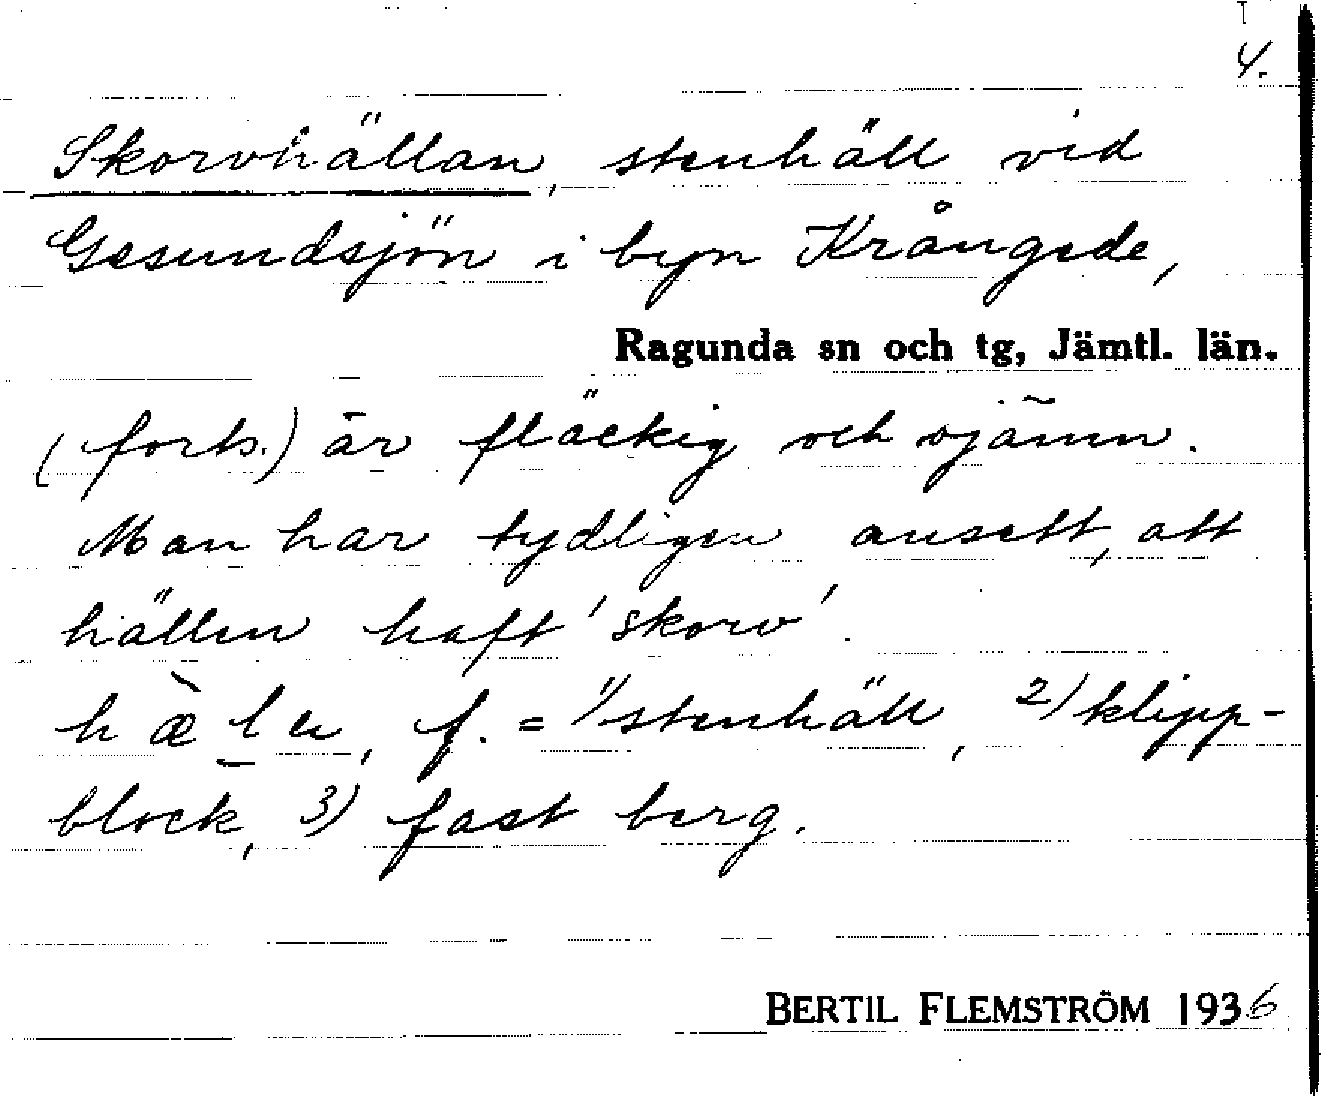 4.
Skorvhällan, stenhäll vid
Gesundsjön i byn Krångede,
Ragunda sn och tg, Jämtl. län.
(forts.) är fläckig och ojämn.
Man har tydligen ansett, att
hällen haft 'skorv'.
f. = 1) stenhäll, 2) klipp-
block, 3) fast berg.
BERTIL FLEMSTRÖM 1936